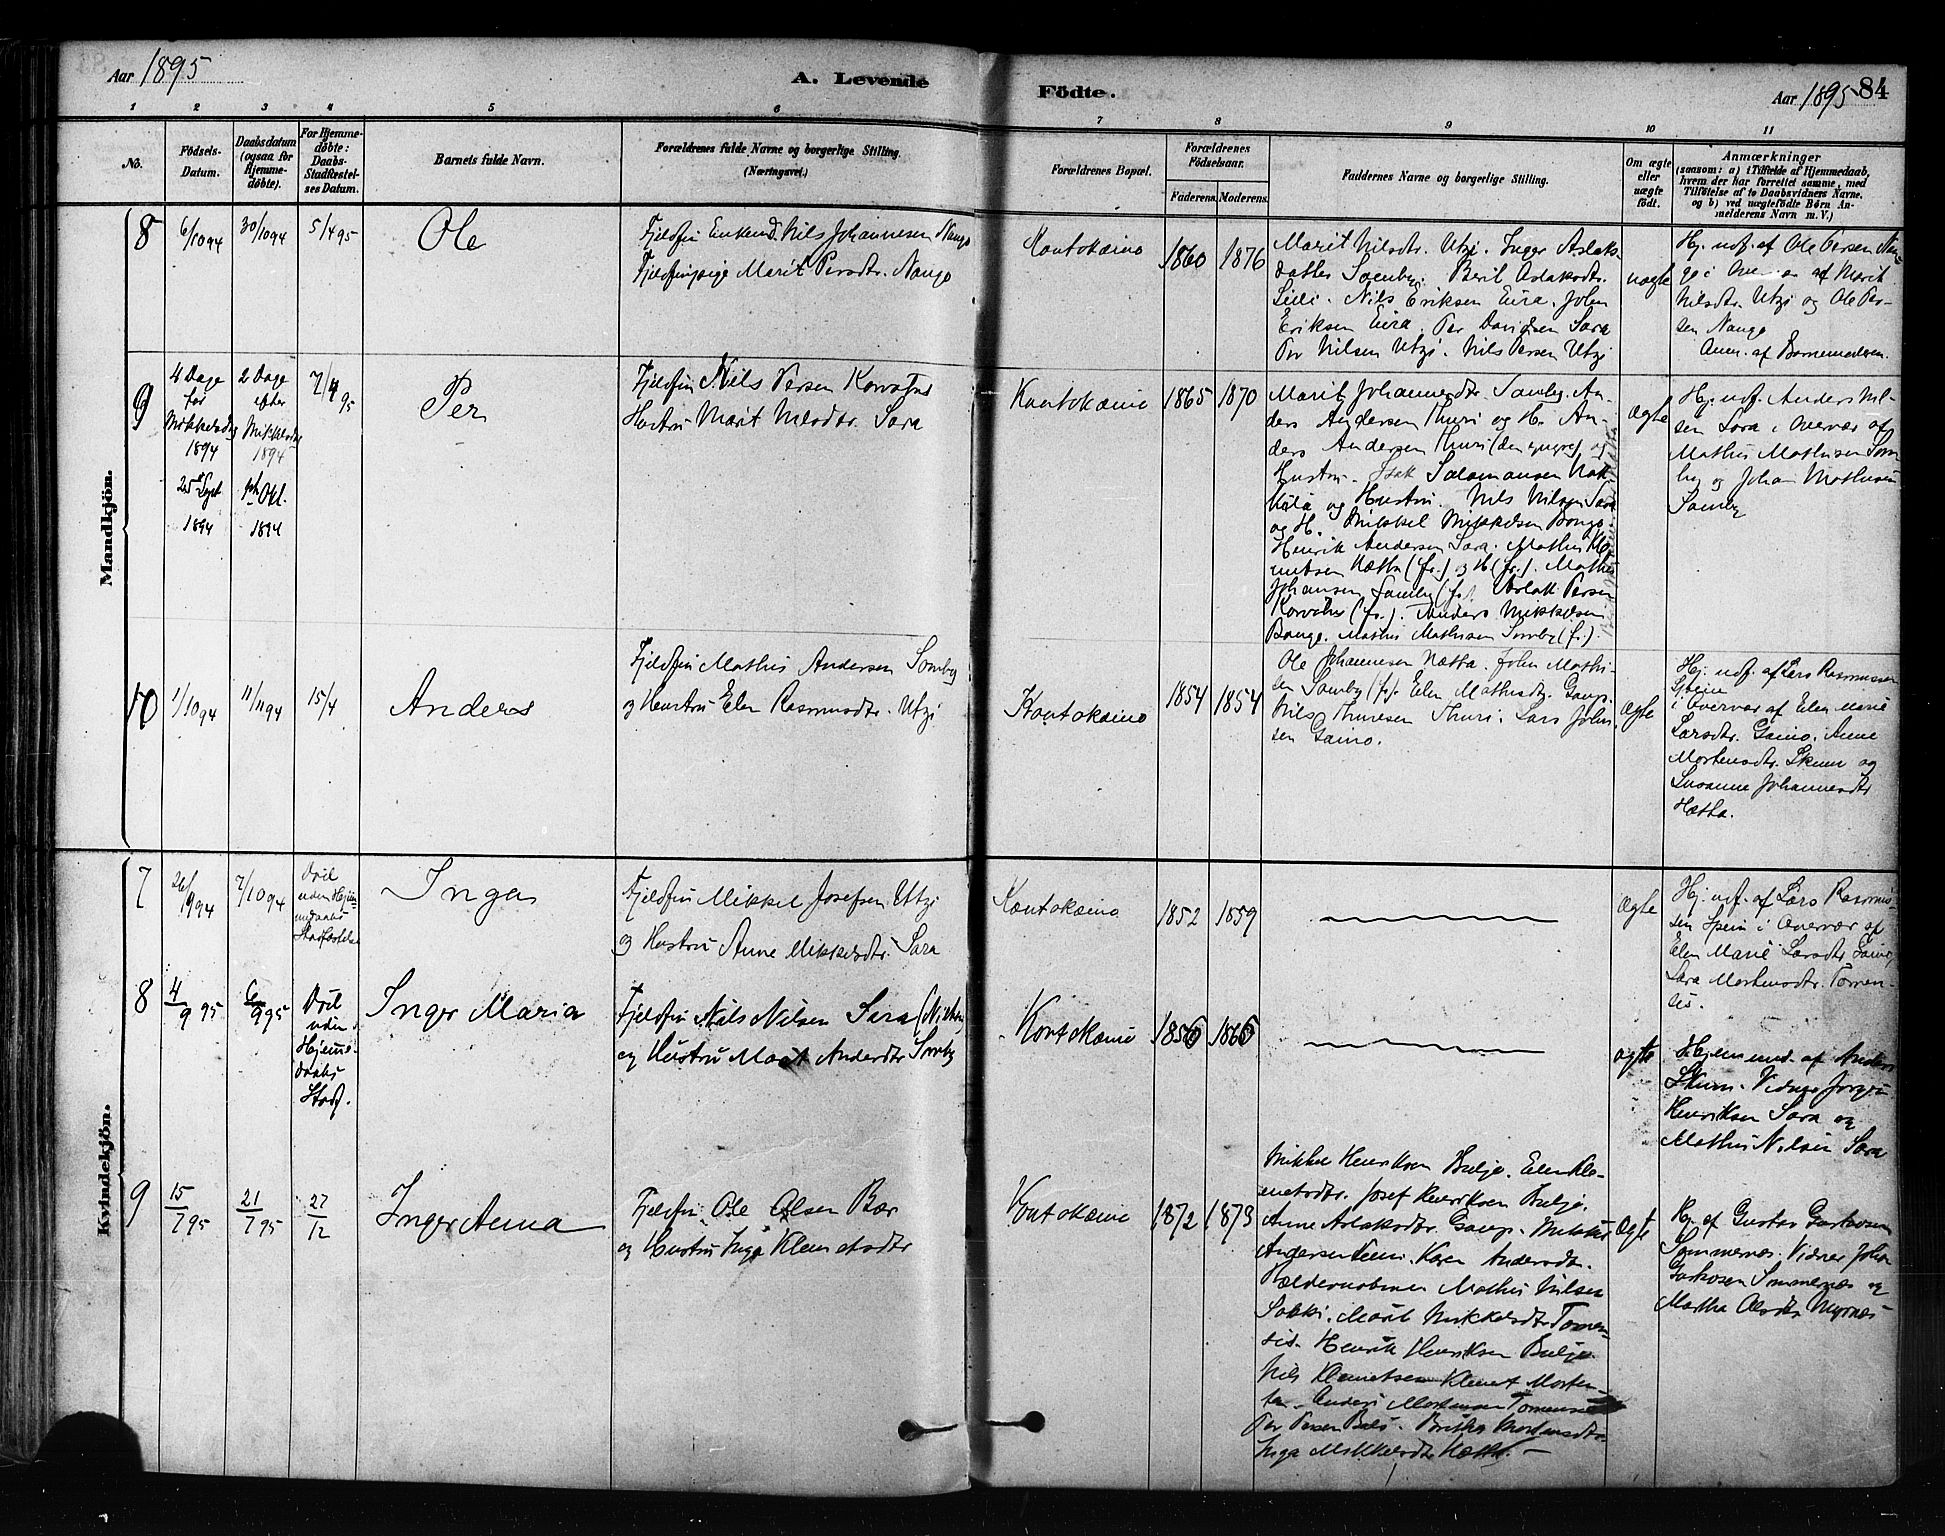 Aar 1895
A. Levende
Födte.
Aar 1895 84
1 2 3 4 5 6 7 8 9 10 11
No.
Födsels-
Datum.
Daabsdatum
(ogsaa for
Hjemme-
døbte).
For Hjemme-
døbte:
Daabs-
Stadfæstel-
ses Datum.
Barnets fulde Navn.
Forældrenes fulde Navne og borgerlige Stilling.
(Næringsvei.)
Forældrenes Bopæl.
Forældrenes
Födselsaar.
Faderens. Moderens.
Faddernes Navne og borgerlige Stilling.
Om ægte
eller
uægte
født.
Anmærkninger
(saasom: a) i Tilfælde af Hjemmedaab,
hvem der har forrettet samme, med
Tilføielse af to Daabsvidners Navne,
og b) ved uægtefødte Børn An-
melderens Navn m. V.)
Mandkjön.
8
6/10 94
30/10 94
5/4 95
Ole
Fjeldfin Enkem. Nils Johannesen Nango
Fjeldfinpige Marit Persdtr. Nango
Kontokæino
1860
1876
Marit Nilsdtr. Utzi. Inger Aslaks-
datter Somby. Berit Aslaksdtr.
Nils Eriksen Eira. John
Eriksen Eira. Per Davidsen Sara
Per Nilsen Utzi. Nils Persen Utzi
uægte
Hj. udf. af Ole Persen Nan-
go i Overvær af Marit
Nilsdtr. Utzi og Ole Per-
sen Nango
Anm. af Barnemoderen.
9
4 Dage
før
Mikkelsdag
1894
25 Sept
1894
2 Dage
efter
Mikkelsdag
1894
1ste Okt.
1894
7/4 95
Per
Fjeldfin Nils Persen Korvatus
Hustru Marit Nilsdtr. Sara
Kontokæino
1865
1870
Marit Johannesdtr. Somby. An-
ders Andersen Thuri og H. An-
ders Andersen Thuri (den yngre) og
Hustru. Isak Salamonsen
og Hustru. Nils Nilsen Sara
og H. Mikkel Mikkelsen Bongo.
Henrik Andersen Sara. Mathis Kle-
metsen Hætta (fr.) og H (fr.). Mathis
Johansen Somby (fr.) Aslak Persen
Korvatus (fr.). Anders Mikkelsen
Bongo. Mathis Mathisen Somby (fr.).
Ægte
Hj. udf. Anders Nil-
sen Sara i Overvær af
Mathis Mathisen Som-
by og Johan Mathisen
Somby
10
1/10 94
11/11 94
15/4
Anders
Fjeldfin Mathis Andersen Somby
og Hustru Elen Rasmusdtr. Utzi
Kontokæino
1854
1854
Ole Johannesen Hætta. John Mathi-
sen Somby (fr). Elen Mathisdtr. Gaup.
Nils Thuresen Thuri. Lars John-
sen Gaino.
Ægte
Hj. udf. af Lars Rasmussen
Spein
i Overvær af Elen Marie
Larsdtr. Gaino. Anne
Mortensdtr. Skum og
Susanne Johannesdtr.
Hætta.
Kvindekjön.
7
26/9 94
7/10 94
Død
uden Hjem-
medaabs
Stadfæstelse
Inga
Fjeldfin Mikkel Josefsen Utzi
og Hustru Anne Mikkelsdtr. Sara
Kontokæino
1852
1859
Ægte
Hj. udf. af Lars Rasmus-
sen Spein i Overvær af
Elen Marie Larsdtr. Gaino,
Sara Mortensdtr. Tornen-
sis.
8
4/9 95
6/9 95
Død
uden
Hjemme-
daabs
Stadf.
Inger Maria
Fjeldfin Nils Nilsen Sara
og Hustru Marit Andersdtr Somby
Kontokæino
1856
1866
ægte
Hjemmed. af Anders
Skum. Vidner Jørgen
Henriksen Sara og
Mathis Nilsen Sara
9
15/7 95
21/7 95
27/12
Inger Anna
Fjeldfin Ole Olsen Bær
og Hustru Inga Klemetsdtr
Kontokæino
1872
1873
Mikkel Henriksen Buljo. Elen Kle-
metsdtr. Josef Henriksen Buljo.
Anne Aslaksdtr. Gaup. Mikkel
Andersen. Karen Andersdtr.
Mathis Nilsen
Marit Mikkelsdtr Tornen-
sis. Henrik Henriksen Buljo
Nils Klemetsen Klemet Morten-
sen. Anders Mortensen Tornensis
Per Persen Bals. Britha Mortensdtr.
Inga Mikkelsdtr Hætta.
Ægte
Hj. af Gustav
Sommernæs. Vidner Johan
Sommernæs og
Martha Olsdtr Myrnæs